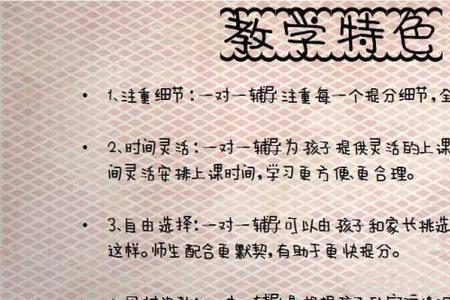 教学特色
• 1、注重细节：一对一辅导注重每一个提分细节，全
• 2、时间灵活：一对一辅导为孩子提供灵活的上课
间灵活安排上课时间，学习更方便、更合理。
• 3、自由选择：一对一辅导可以由孩子和家长挑选
这样。师生配合更默契，有助于更快提分。